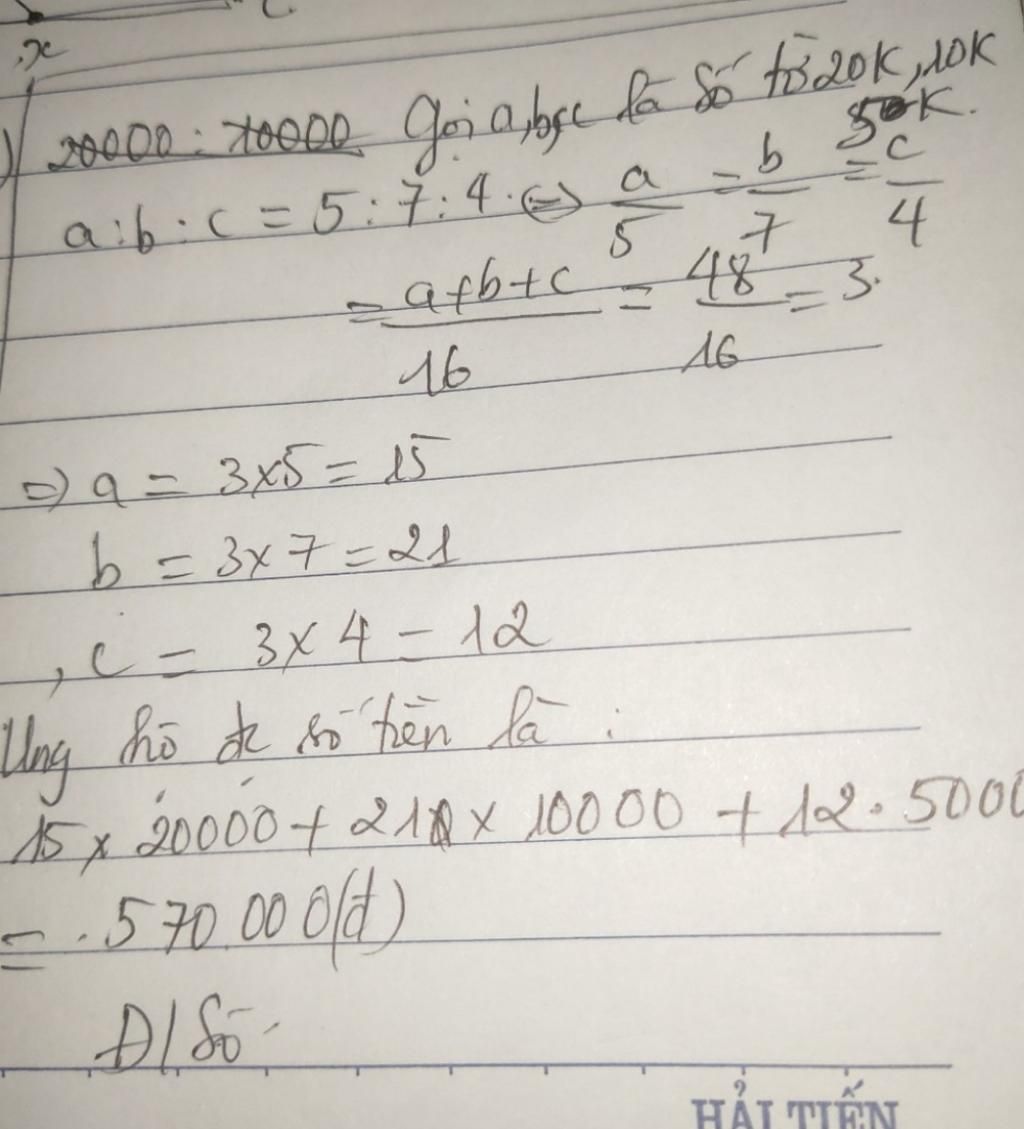 x
20000 : 10000 Gọi a,b,c là số tờ 20K, 10K
5K.
a : b : c = 5 : 7 : 4 . <=> a/5 = b/7 = c/4
= a+b+c/16 = 48/16 = 3.
=> a = 3x5 = 15
b = 3x7 = 21
, c = 3x4 = 12
Ủng hộ đc số tiền là :
15 x 20000 + 21 x 10000 + 12 . 5000
= . 570 000 (đ)
Đ/Số
HẢI TIẾN